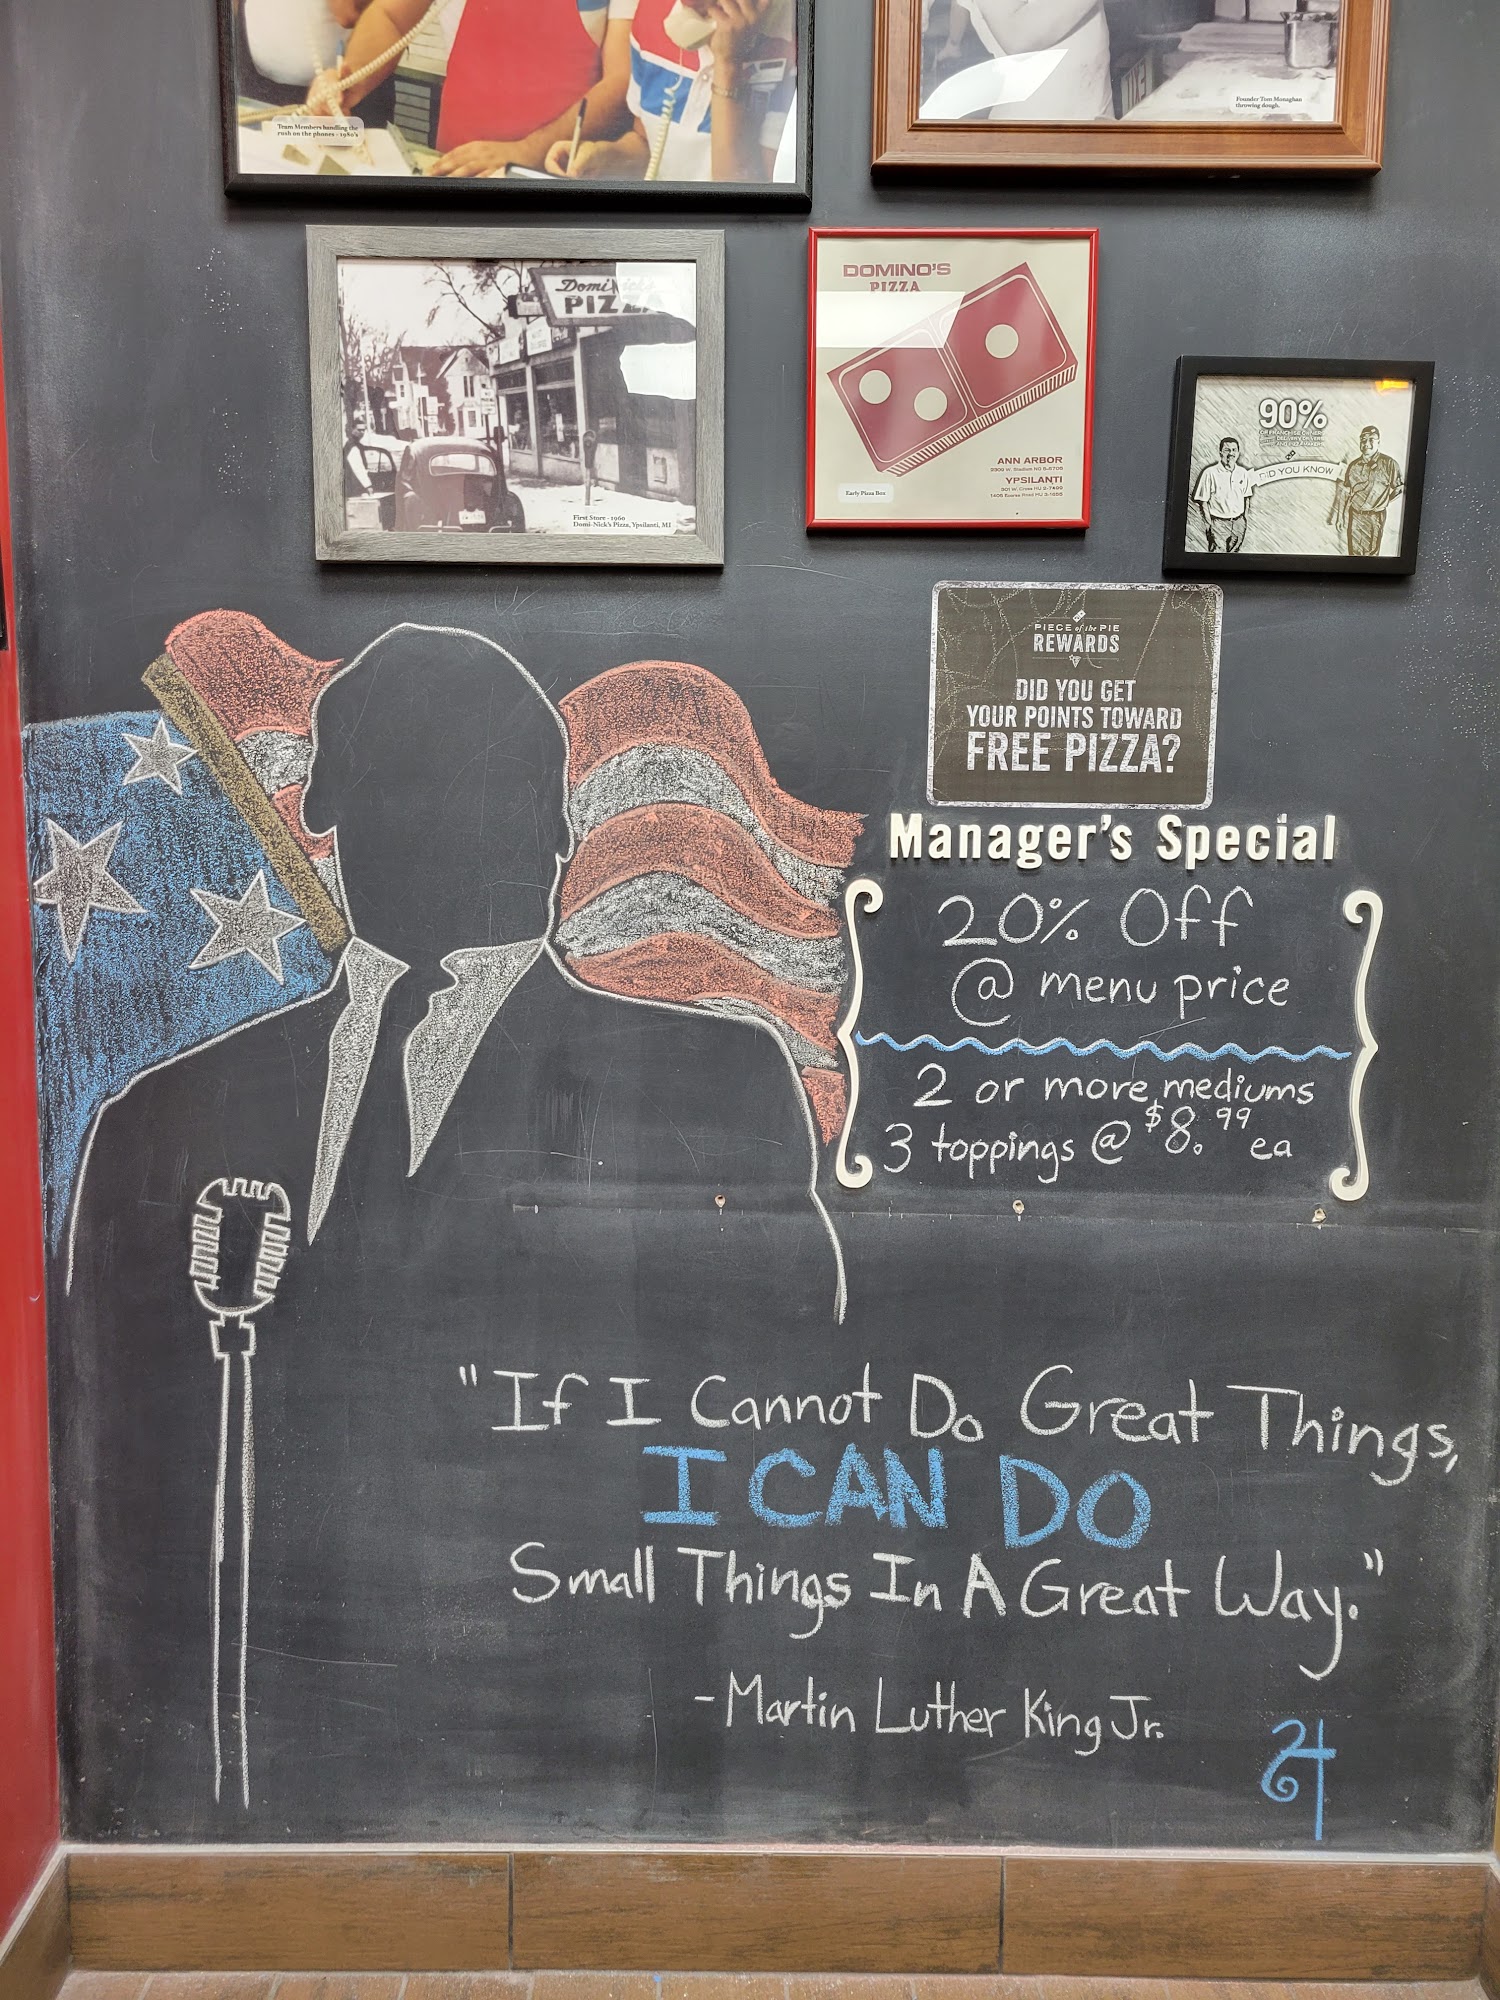 Team Members handling the
rush on the phones - 1980's
Founder Tom Monaghan
throwing dough.
Domi Nick's
PIZZA
First Store - 1960
Domi-Nick's Pizza, Ypsilanti, MI
DOMINO'S
PIZZA
ANN ARBOR
YPSILANTI
Early Pizza Box
90%
OF FRANCHISE OWNERS
DID YOU KNOW
PIECE of the PIE
REWARDS
DID YOU GET
YOUR POINTS TOWARD
FREE PIZZA?
Manager's Special
20% Off
@ menu price
2 or more mediums
3 toppings @ $8.99 ea
"If I Cannot Do Great Things,
I CAN DO
Small Things In A Great Way."
- Martin Luther King Jr.